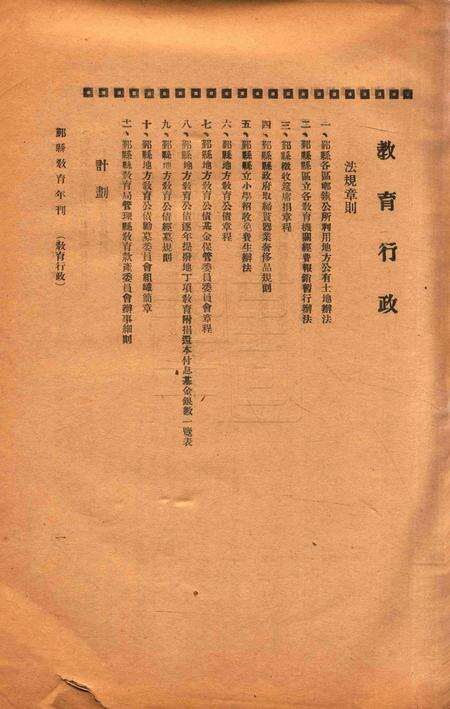 教育行政
法規章則
一、鄞縣各區鄉鎮公所利用地方公有土地辦法
二、鄞縣縣區立各教育機關經費報銷暫行辦法
三、鄞縣徵收筵席捐章程
四、鄞縣縣政府取締賃器業奢侈品規則
五、鄞縣縣立小學招收免費生辦法
六、鄞縣地方教育公債章程
七、鄞縣地方教育公債基金保管委員會章程
八、鄞縣地方教育公債逐年提撥地丁項教育附捐還本付息基金銀數一覽表
九、鄞縣地方教育公債經募規則
十、鄞縣地方教育公債勸募委員會組織簡章
十一、鄞縣縣教育局管理縣教育款產委員會辦事細則
計劃
鄞縣教育年刊 (教育行政) 一